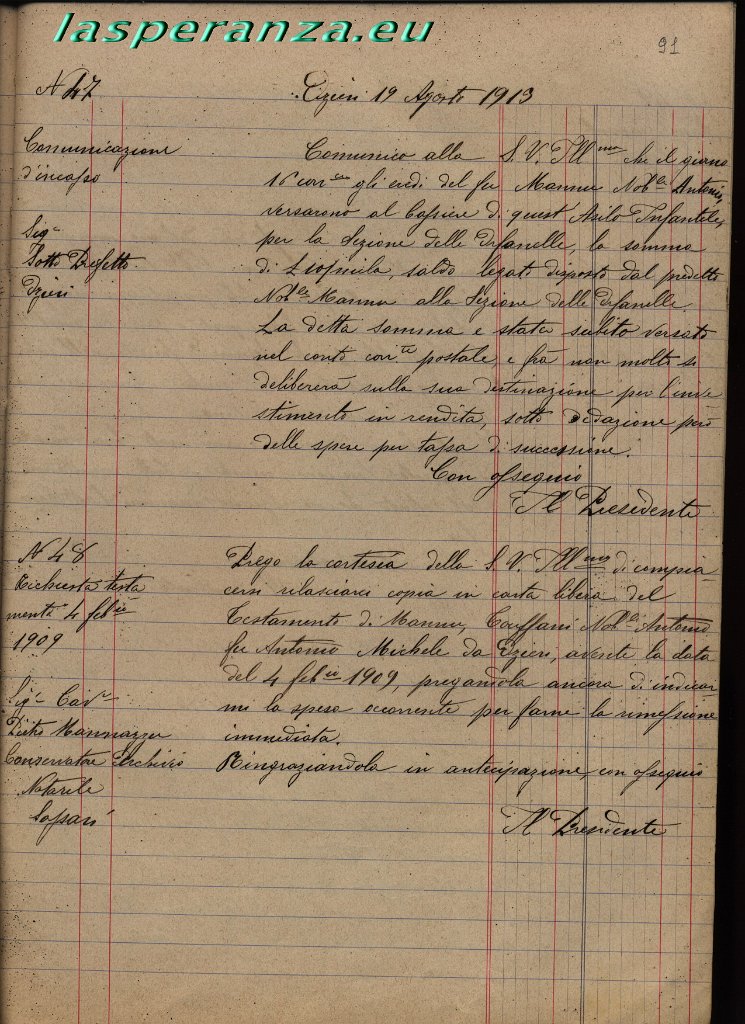 lasperanza.eu
91
N 47
Ozieri 19 Agosto 1913
Comunicazione
d'incasso
Sig.r
Sotto Prefetto
Ozieri
Comunico alla S. V. Ill.ma che il giorno
16 corr.te gli eredi del fu Mannu Nob.le Antonio,
versarono al Cassiere di quest'Asilo Infantile,
per la Sezione delle Orfanelle, la somma
di L. saldo legato disposto dal predetto
Nob.le Mannu alla Sezione delle Orfanelle.
La detta somma e stata subito versata
nel conto corr.te postale, e frà non molto si
delibererà sulla sua destinazione per l'inve
stimento in rendita, sotto però
delle spese per tassa di successione.
Con ossequio
Il Presidente
N 48
Richiesta testa
mento 4 febb.io
1909
Sig.r Cav.r
Pietro Mannazzu
Conservatore Archivio
Notarile
Sassari
Prego la cortesia della S. V. Ill.ma di compia
cersi rilasciarci copia in carta libera del
Testamento di Mannu, Nob.le Antonio
fu Antonio Michele da Ozieri, avente la data
del 4 febb.io 1909, pregandola ancora di indicar
mi la spesa occorrente per farne la rimessione
immediata.
Ringraziandola in antecipazione, con ossequio
Il Presidente